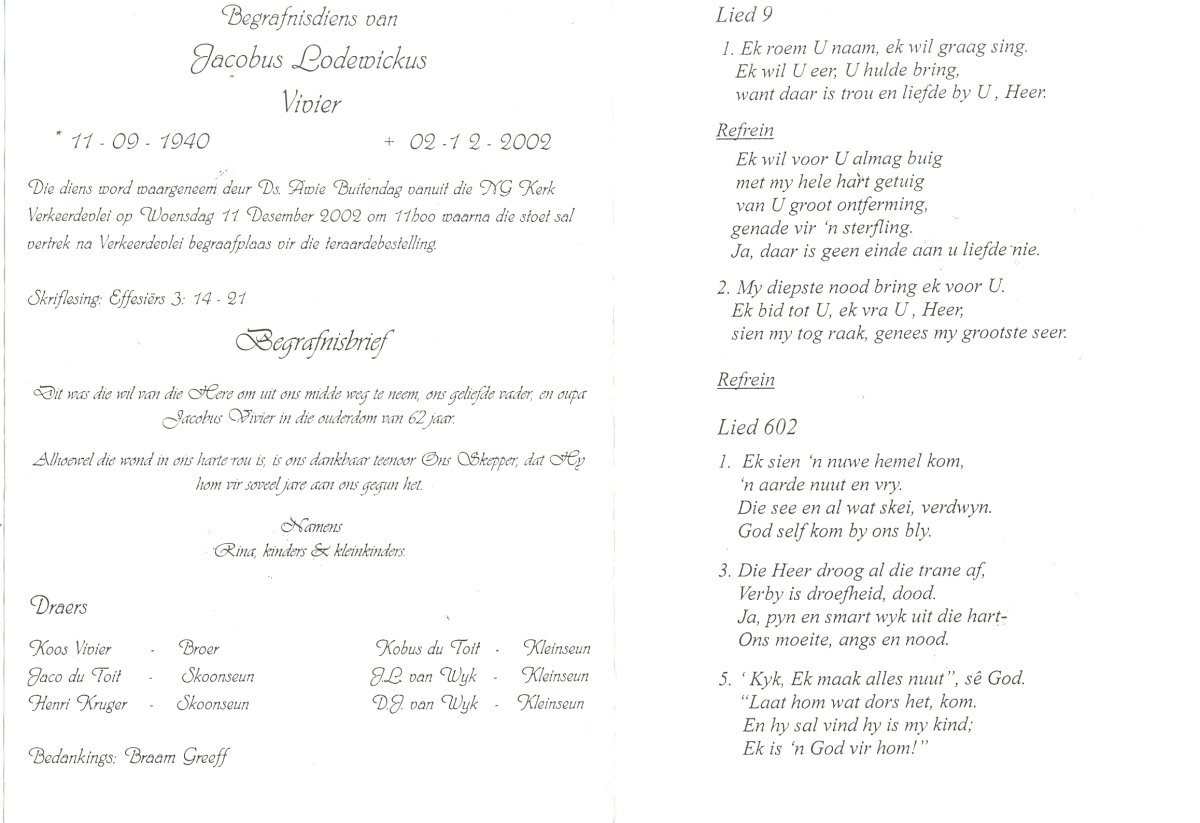 Begrafnisdiens van
Jacobus Lodewickus
Vivier
* 11 - 09 - 1940 + 02 -1 2 - 2002
Die diens word waargeneem deur Ds. Awie Buitendag vanuit die NG Kerk
Verkeerdevlei op Woensdag 11 Desember 2002 om 11h00 waarna die stoet sal
vertrek na Verkeerdevlei begraafplaas vir die teraardebestelling.
Skriflesing: Effesiërs 3: 14 - 21
Begrafnisbrief
Dit was die wil van die Here om uit ons midde weg te neem, ons geliefde vader, en oupa
Jacobus Vivier in die ouderdom van 62 jaar.
Alhoewel die wond in ons harte rou is, is ons dankbaar teenoor Ons Skepper, dat Hy
hom vir soveel jare aan ons gegun het.
Namens
Rina, kinders & kleinkinders.
Draers
Koos Vivier - Broer Kobus du Toit - Kleinseun
Jaco du Toit - Skoonseun J.L. van Wyk - Kleinseun
Henri Kruger - Skoonseun D.J. van Wyk - Kleinseun
Bedankings: Braam Greeff
Lied 9
1. Ek roem U naam, ek wil graag sing.
Ek wil U eer, U hulde bring,
want daar is trou en liefde by U , Heer.
Refrein
Ek wil voor U almag buig
met my hele hart getuig
van U groot ontferming,
genade vir ‘n sterfling.
Ja, daar is geen einde aan u liefde nie.
2. My diepste nood bring ek voor U.
Ek bid tot U, ek vra U , Heer,
sien my tog raak, genees my grootste seer.
Refrein
Lied 602
1. Ek sien ‘n nuwe hemel kom,
‘n aarde nuut en vry.
Die see en al wat skei, verdwyn.
God self kom by ons bly.
3. Die Heer droog al die trane af,
Verby is droefheid, dood.
Ja, pyn en smart wyk uit die hart-
Ons moeite, angs en nood.
5. ‘ Kyk, Ek maak alles nuut”, sê God.
“Laat hom wat dors het, kom.
En hy sal vind hy is my kind;
Ek is ‘n God vir hom!”